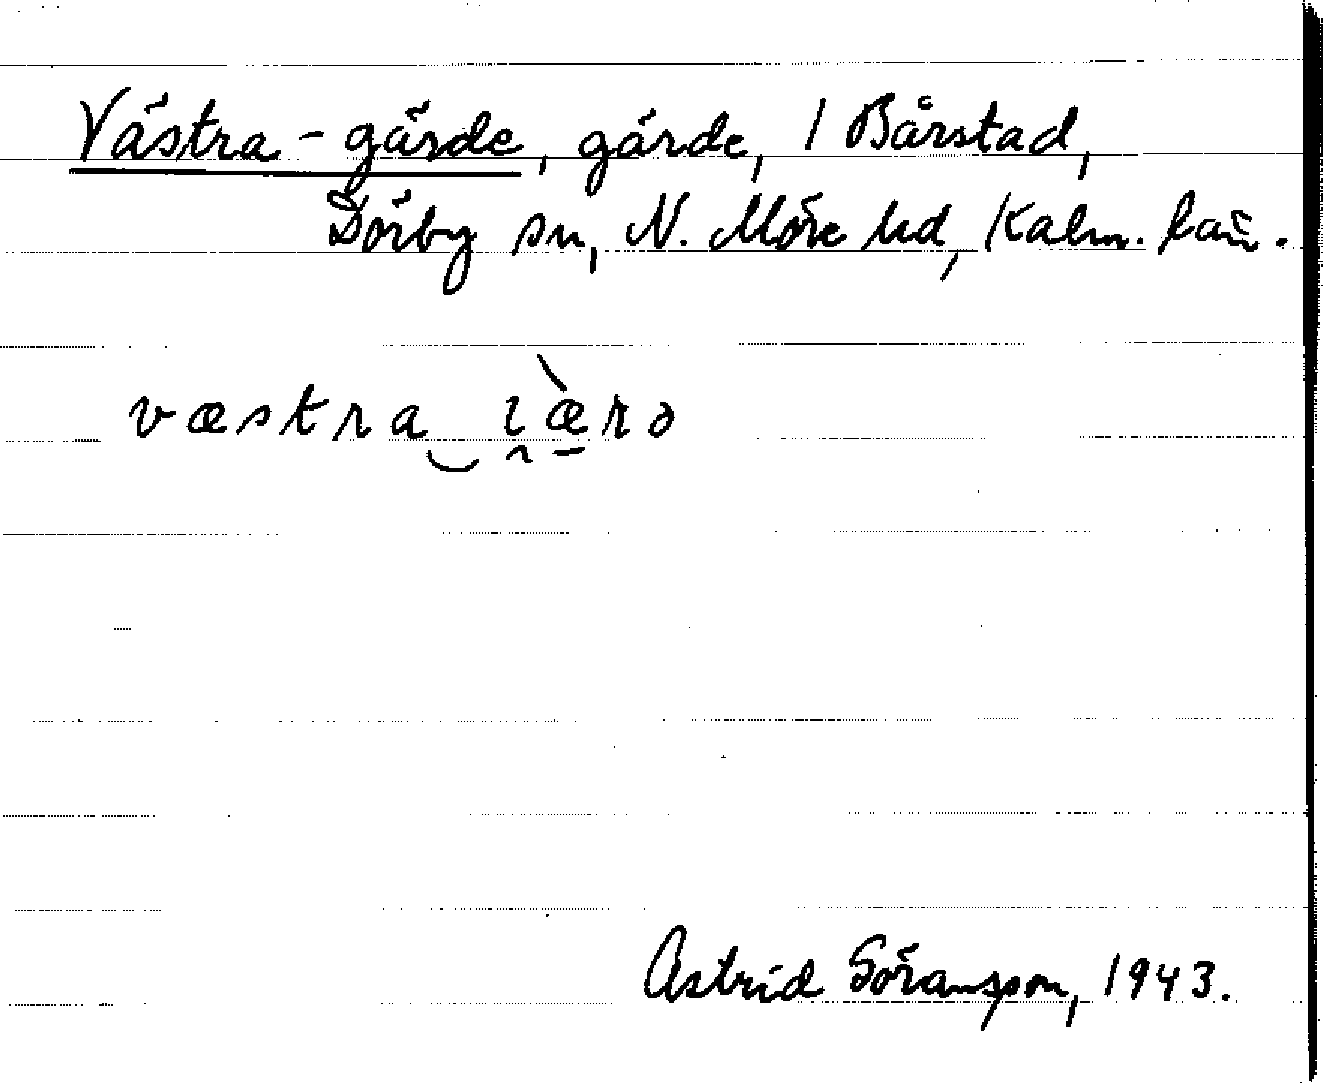 Västra-gärde, gärde, / Bårstad,
Dörby sn, N. Möre hd, Kalm. län.
væstra‿ ɩ̯æ̠̀rə
Astrid Göransson, 1943.